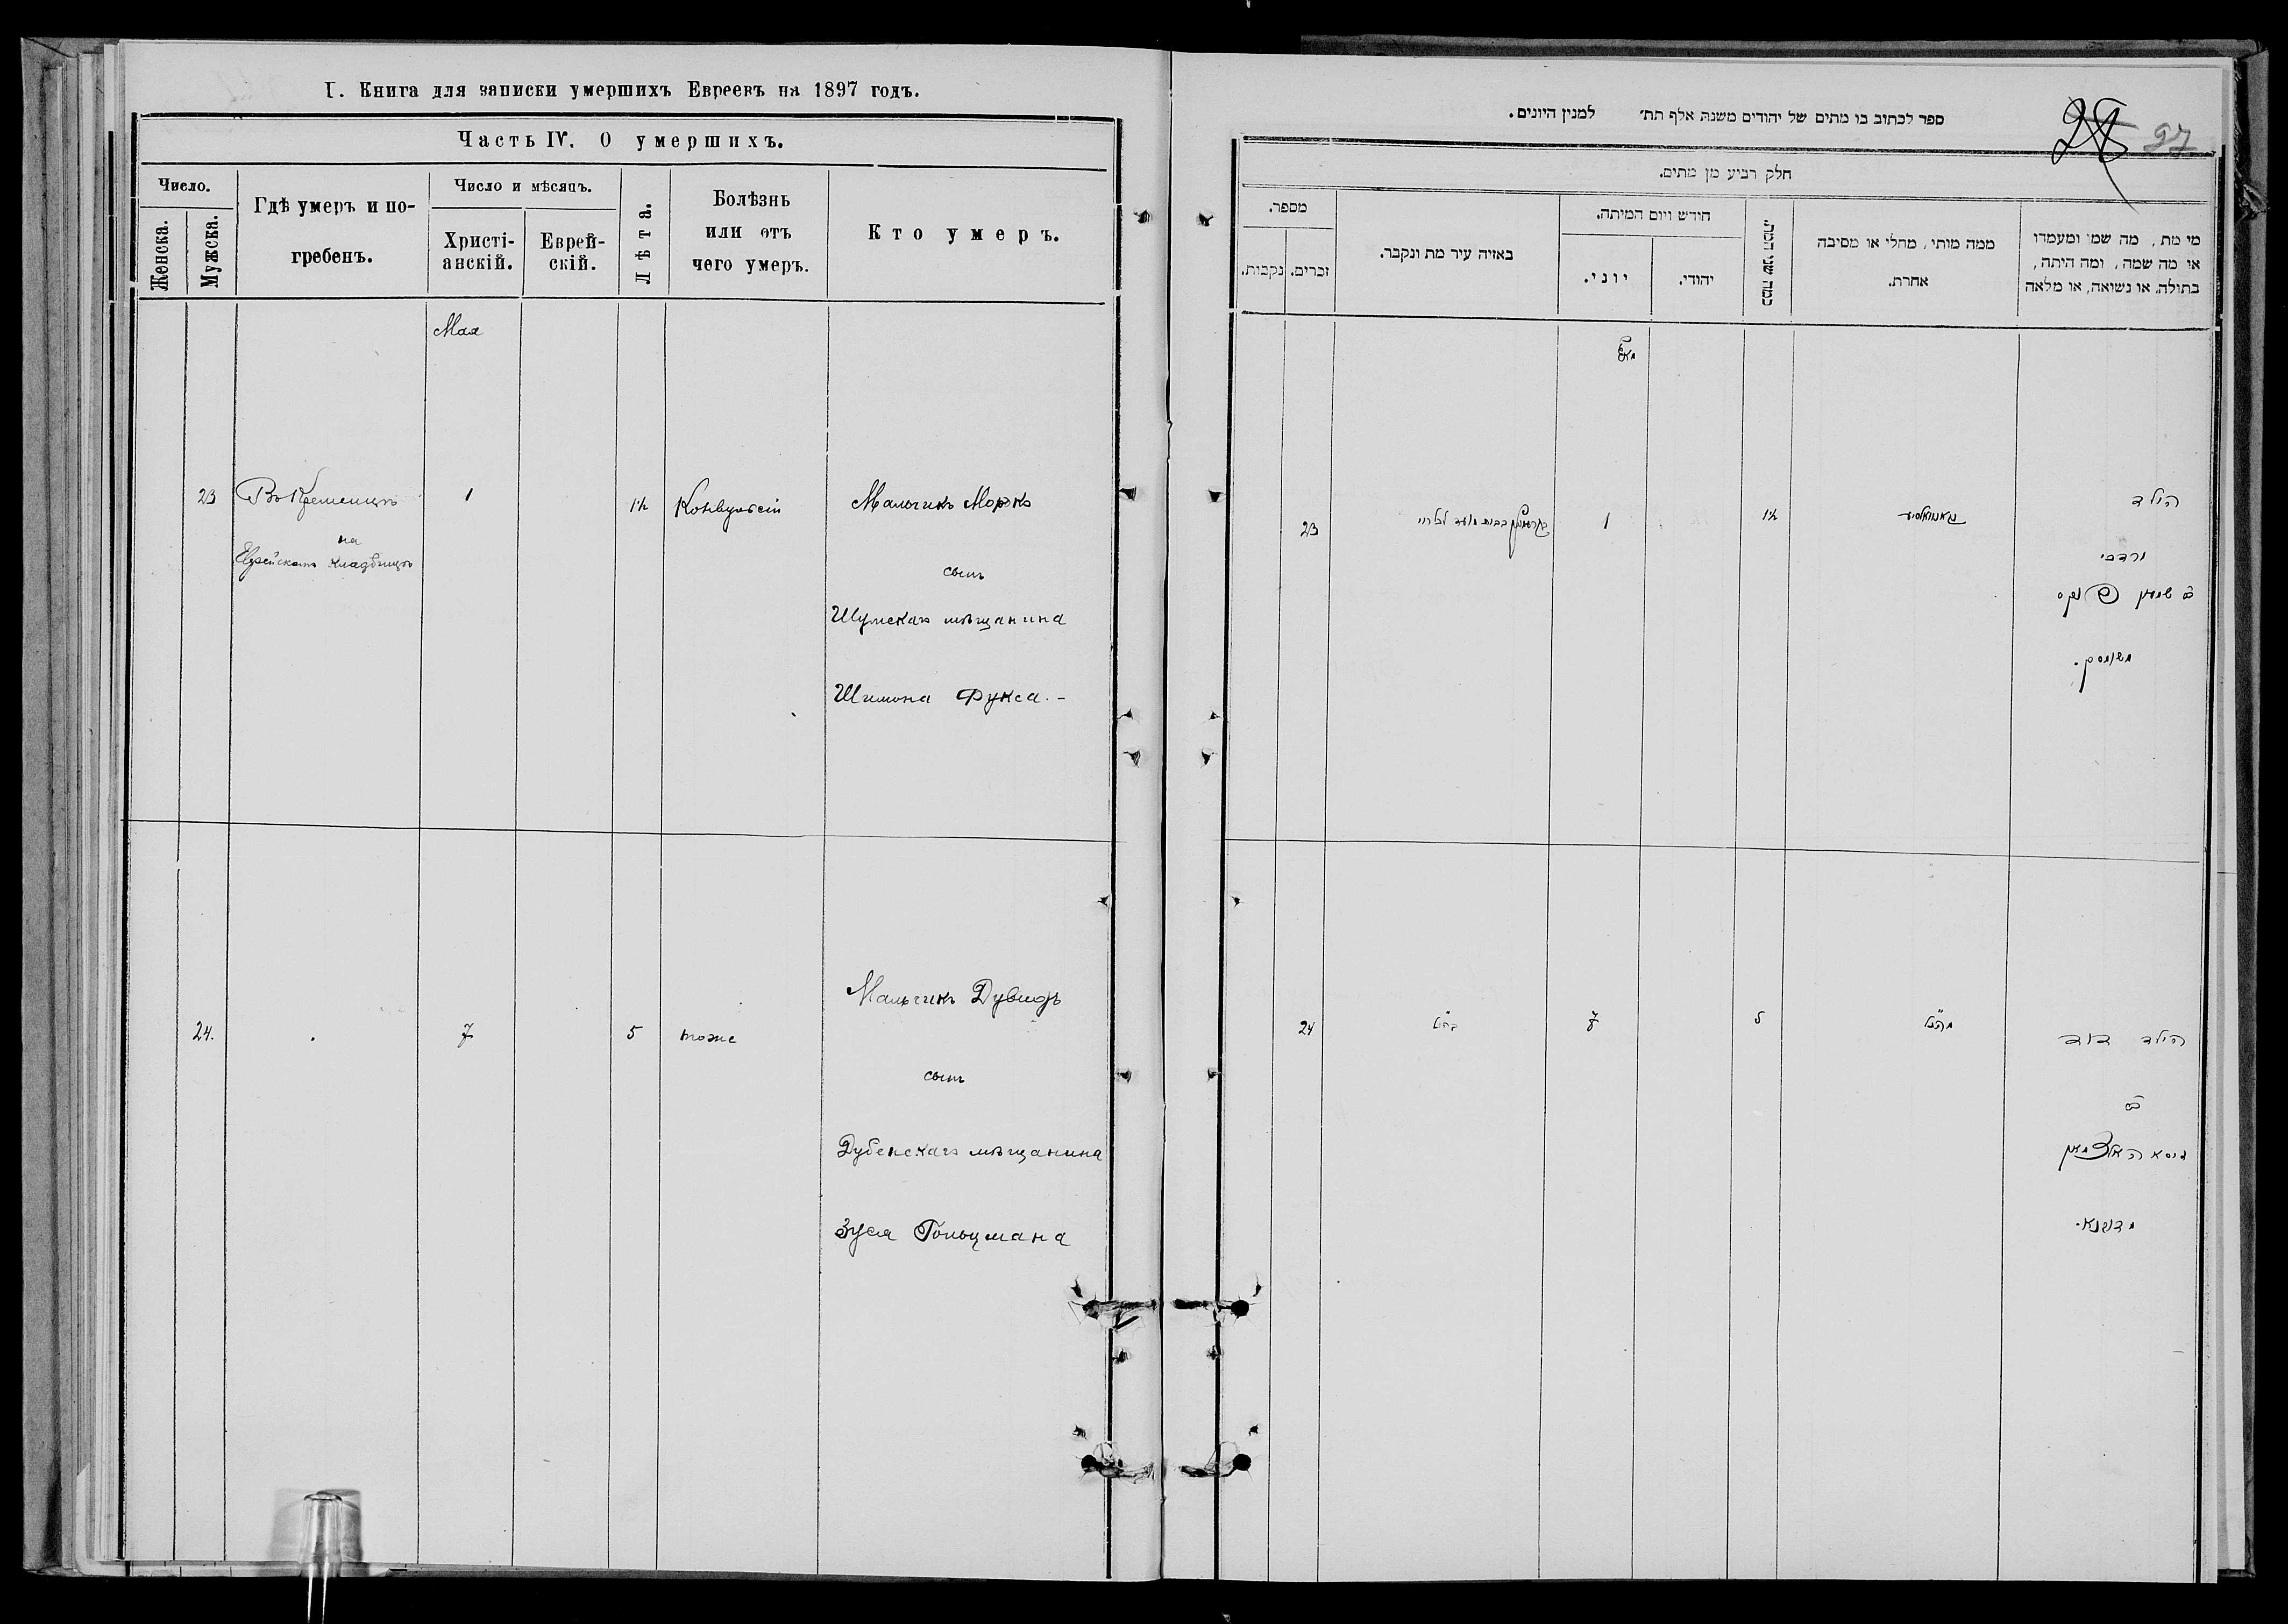 I. Книга для записки умершихъ Евреевъ на 1897 годъ.
Часть IV. О умершихъ.
Число.
Женска.
Мужска.
Гдѣ умеръ и по-
гребенъ.
Число и мѣсяцъ.
Христі-
анскій.
Еврей-
скій.
Лѣта.
Болѣзнь
или отъ
чего умеръ.
Кто умеръ.
Мая
23
Въ Кременцѣ
на
Еврейскомъ кладбищѣ
1
1½
Конвульсіи
Мальчикъ Морко
сынъ
Шумскаго мѣщанина
Шимона Фукса. -
24.
7
5
тоже
Мальчикъ Дувидъ
сынъ
Дубенскаго мѣщанина
Зуся Гольцмана
ספר לכתוב בו מתים של יהודים משנת אלף תת׳ למנין היונים.
97
חלק רביע מן מתים.
מספר.
נקבות.
זכרים.
באיזה עיר מת ונקבר.
חידש ויום המיתה.
יוני.
יהודי.
כמה שני המת.
ממה מותי, מחלי או מסיבה
אחרת.
מי מת, מה שמו ומעמדו
או מה שמה, ומה היתה,
בתולה, או נשואה, או מלאה
מאי
23
1
1½
הילד
מרדכי
ב״ר שמעון פוקס
משומסק.
24
כנ״ל
7
5
כנ״ל
הילד דוד
ב״ר
זוסא האלצמאן
מדובנא.